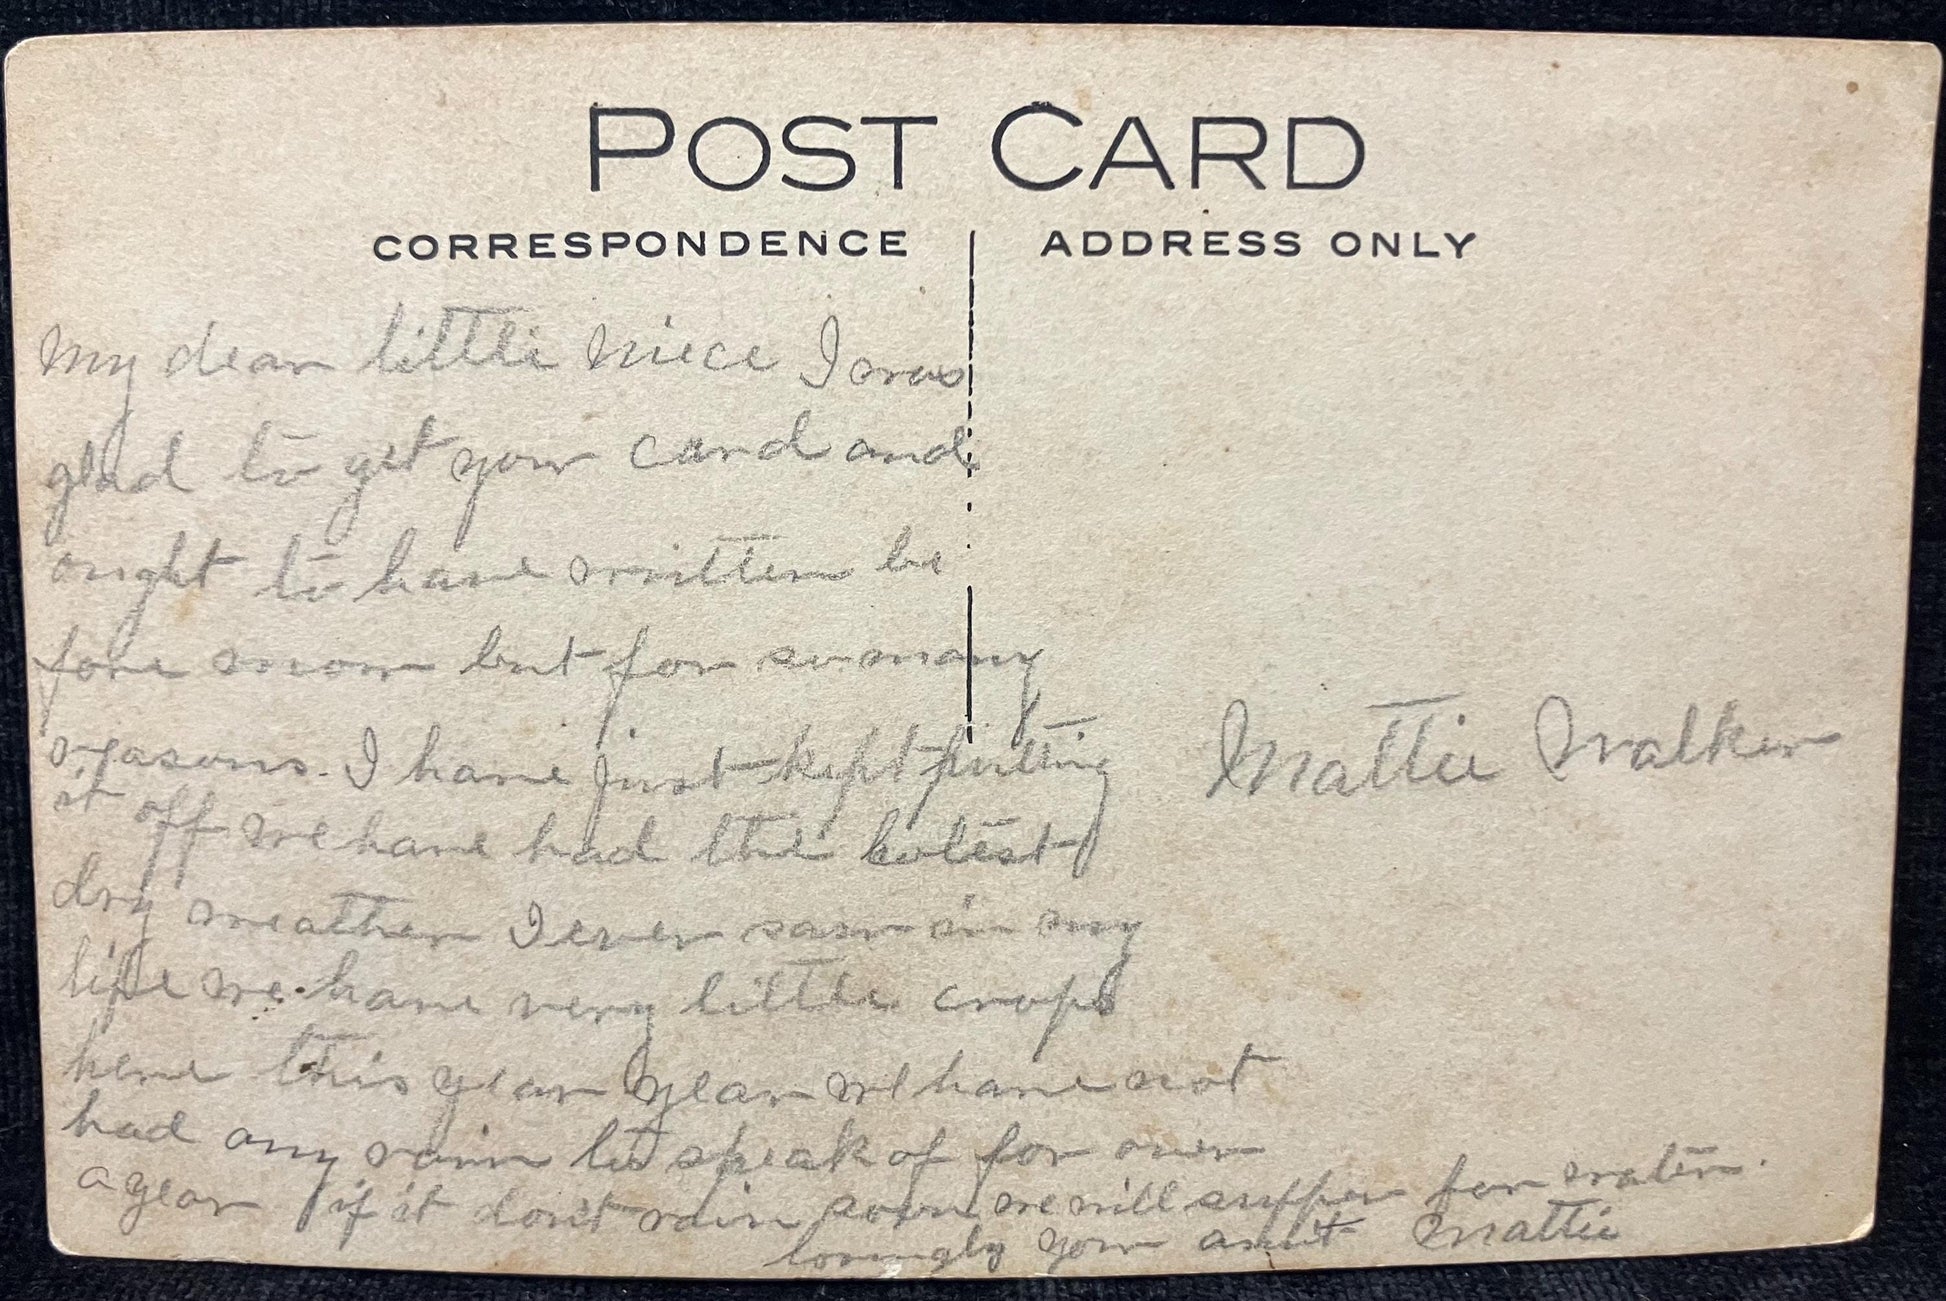 POST CARD
CORRESPONDENCE
ADDRESS ONLY
My dear little niece I was
glad to get your card and
ought to have written be
fore now but for so many
reasons. I have just kept putting
it off we have had the hotest
dry weather I ever saw in my
life we have very little crops
here this year year we have not
had any rain to speak of for over
a year if it don't rain soon we will suffer for water.
lovingly your aunt Mattie
Mattie Walker